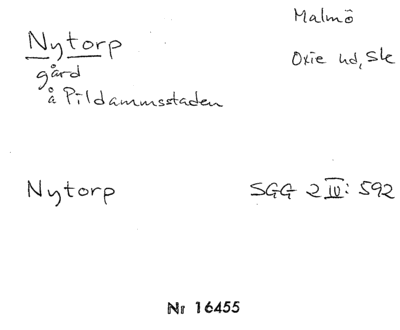 Malmö
Nytorp
Oxie hd, Sk
gård
å Pildammsstaden
Nytorp
SGG 2 IV: 592
Nr 16455